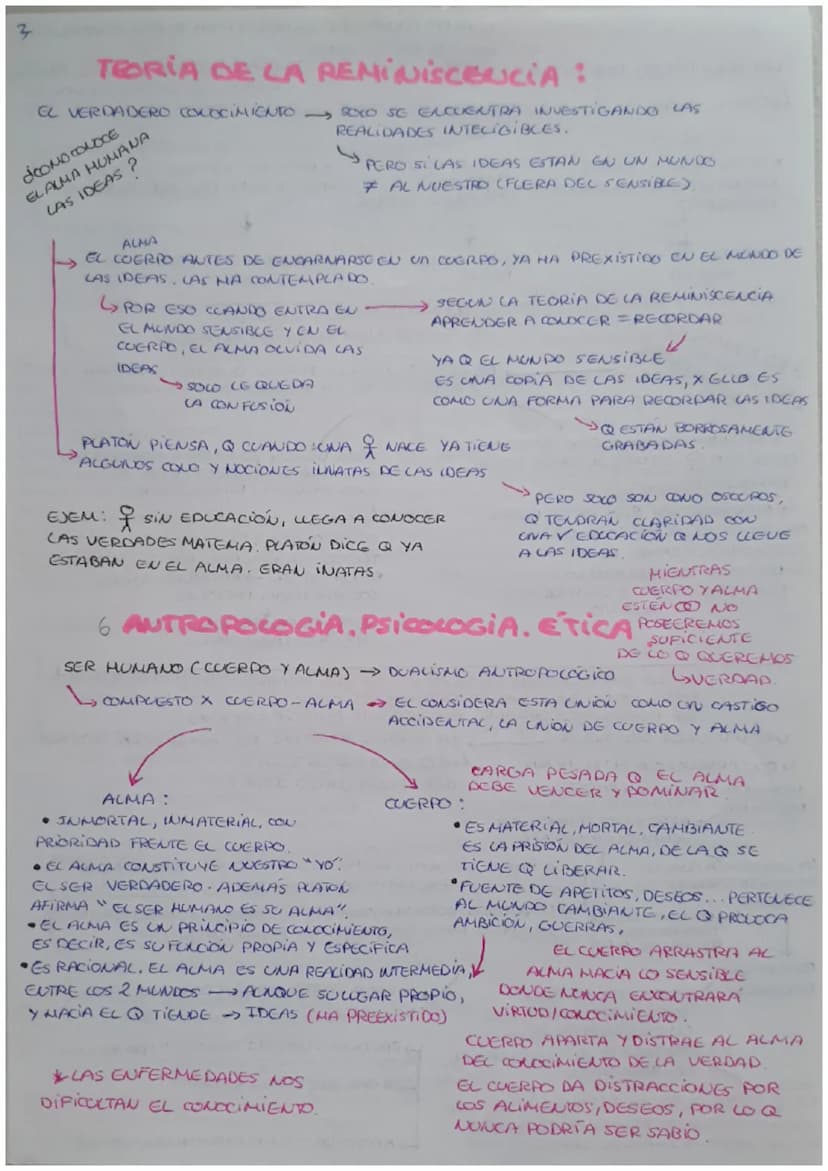 3
TEORÍA DE LA REMINISCENCIA:
EL VERDADERO CONOCIMIENTO → SOLO SE ENCUENTRA INVESTIGANDO LAS
REALIDADES INTELIGIBLES.
¿COMO CONOCE
EL ALMA HUMANA
LAS IDEAS?
PERO SI LAS IDEAS ESTAN EN UN MUNDO
≠ AL NUESTRO (FUERA DEL SENSIBLE)
ALMA
EL CUERPO ANTES DE ENCARNARSE EN UN CUERPO, YA HA PREXISTIDO EN EL MUNDO DE
LAS IDEAS. LAS HA CONTEMPLADO.
POR ESO CUANDO ENTRA EN
EL MUNDO SENSIBLE Y EN EL
CUERPO, EL ALMA OLVIDA LAS
IDEAS
SOLO LE QUEDA
LA CONFUSIÓN
→ SEGUN LA TEORIA DE LA REMINISCENCIA
APRENDER A CONOCER = RECORDAR
YA Q EL MUNDO SENSIBLE
ES UNA COPIA DE LAS IDEAS, X ELLO ES
COMO UNA FORMA PARA RECORDAR LAS IDEAS
Q ESTÁN BORROSAMENTE
GRABADAS.
PLATÓN PIENSA, Q CUANDO UNA NACE YA TIENE
ALGUNOS CONO Y NOCIONES INNATAS DE LAS IDEAS
PERO SOLO SON CONO OSCUROS,
Q TENDRÁN CLARIDAD CON
UNA V EDUCACIÓN Q NOS LLEVE
A LAS IDEAS.
EJEM: SIN EDUCACIÓN, LLEGA A CONOCER
LAS VERDADES MATEMA. PLATÓN DICE Q YA
ESTABAN EN EL ALMA. ERAN INATAS.
MIENTRAS
CUERPO Y ALMA
ESTÉN NO
POSEEREMOS
SUFICIENTE
DE LO Q QUEREMOS
VERDAD.
6 ANTROPOLOGÍA. PSICOLOGIA. ÉTICA
SER HUMANO (CUERPO Y ALMA) → DUALISMO ANTROPOLÓGICO
COMPUESTO X CUERPO-ALMA → EL CONSIDERA ESTA UNIÓN COMO UN CASTIGO
ACCIDENTAL, LA UNIÓN DE CUERPO Y ALMA
ALMA:
• INMORTAL, INMATERIAL, CON
PRIORIDAD FRENTE EL CUERPO.
• EL ALMA CONSTITUYE NUESTRO "YO".
EL SER VERDADERO. ADEMÁS PLATÓN
AFIRMA "EL SER HUMANO ES SU ALMA".
• EL ALMA ES UN PRINCIPIO DE CONOCIMIENTO,
ES DECIR, ES SU FUNCIÓN PROPIA Y ESPECÍFICA
• ES RACIONAL. EL ALMA ES UNA REALIDAD INTERMEDIA,
ENTRE LOS 2 MUNDOS → AUNQUE SU LUGAR PROPIO,
Y HACIA EL Q TIENDE → IDEAS (HA PREEXISTIDO)
* LAS ENFERMEDADES NOS
DIFICULTAN EL CONOCIMIENTO.
CARGA PESADA Q EL ALMA
DEBE VENCER Y DOMINAR
CUERPO:
• ES MATERIAL, MORTAL, CAMBIANTE
ES LA PRISIÓN DEL ALMA, DE LA Q SE
TIENE Q LIBERAR.
• FUENTE DE APETITOS, DESEOS... PERTENECE
AL MUNDO CAMBIANTE, EL Q PROVOCA
AMBICIÓN, GUERRAS,
EL CUERPO ARRASTRA AL
ALMA HACIA LO SENSIBLE
DONDE NUNCA ENCONTRARÁ
VIRTUD/CONOCIMIENTO.
CUERPO APARTA Y DISTRAE AL ALMA
DEL CONOCIMIENTO DE LA VERDAD.
EL CUERPO DA DISTRACCIONES POR
LOS ALIMENTOS, DESEOS, POR LO Q
NUNCA PODRÍA SER SABIO.